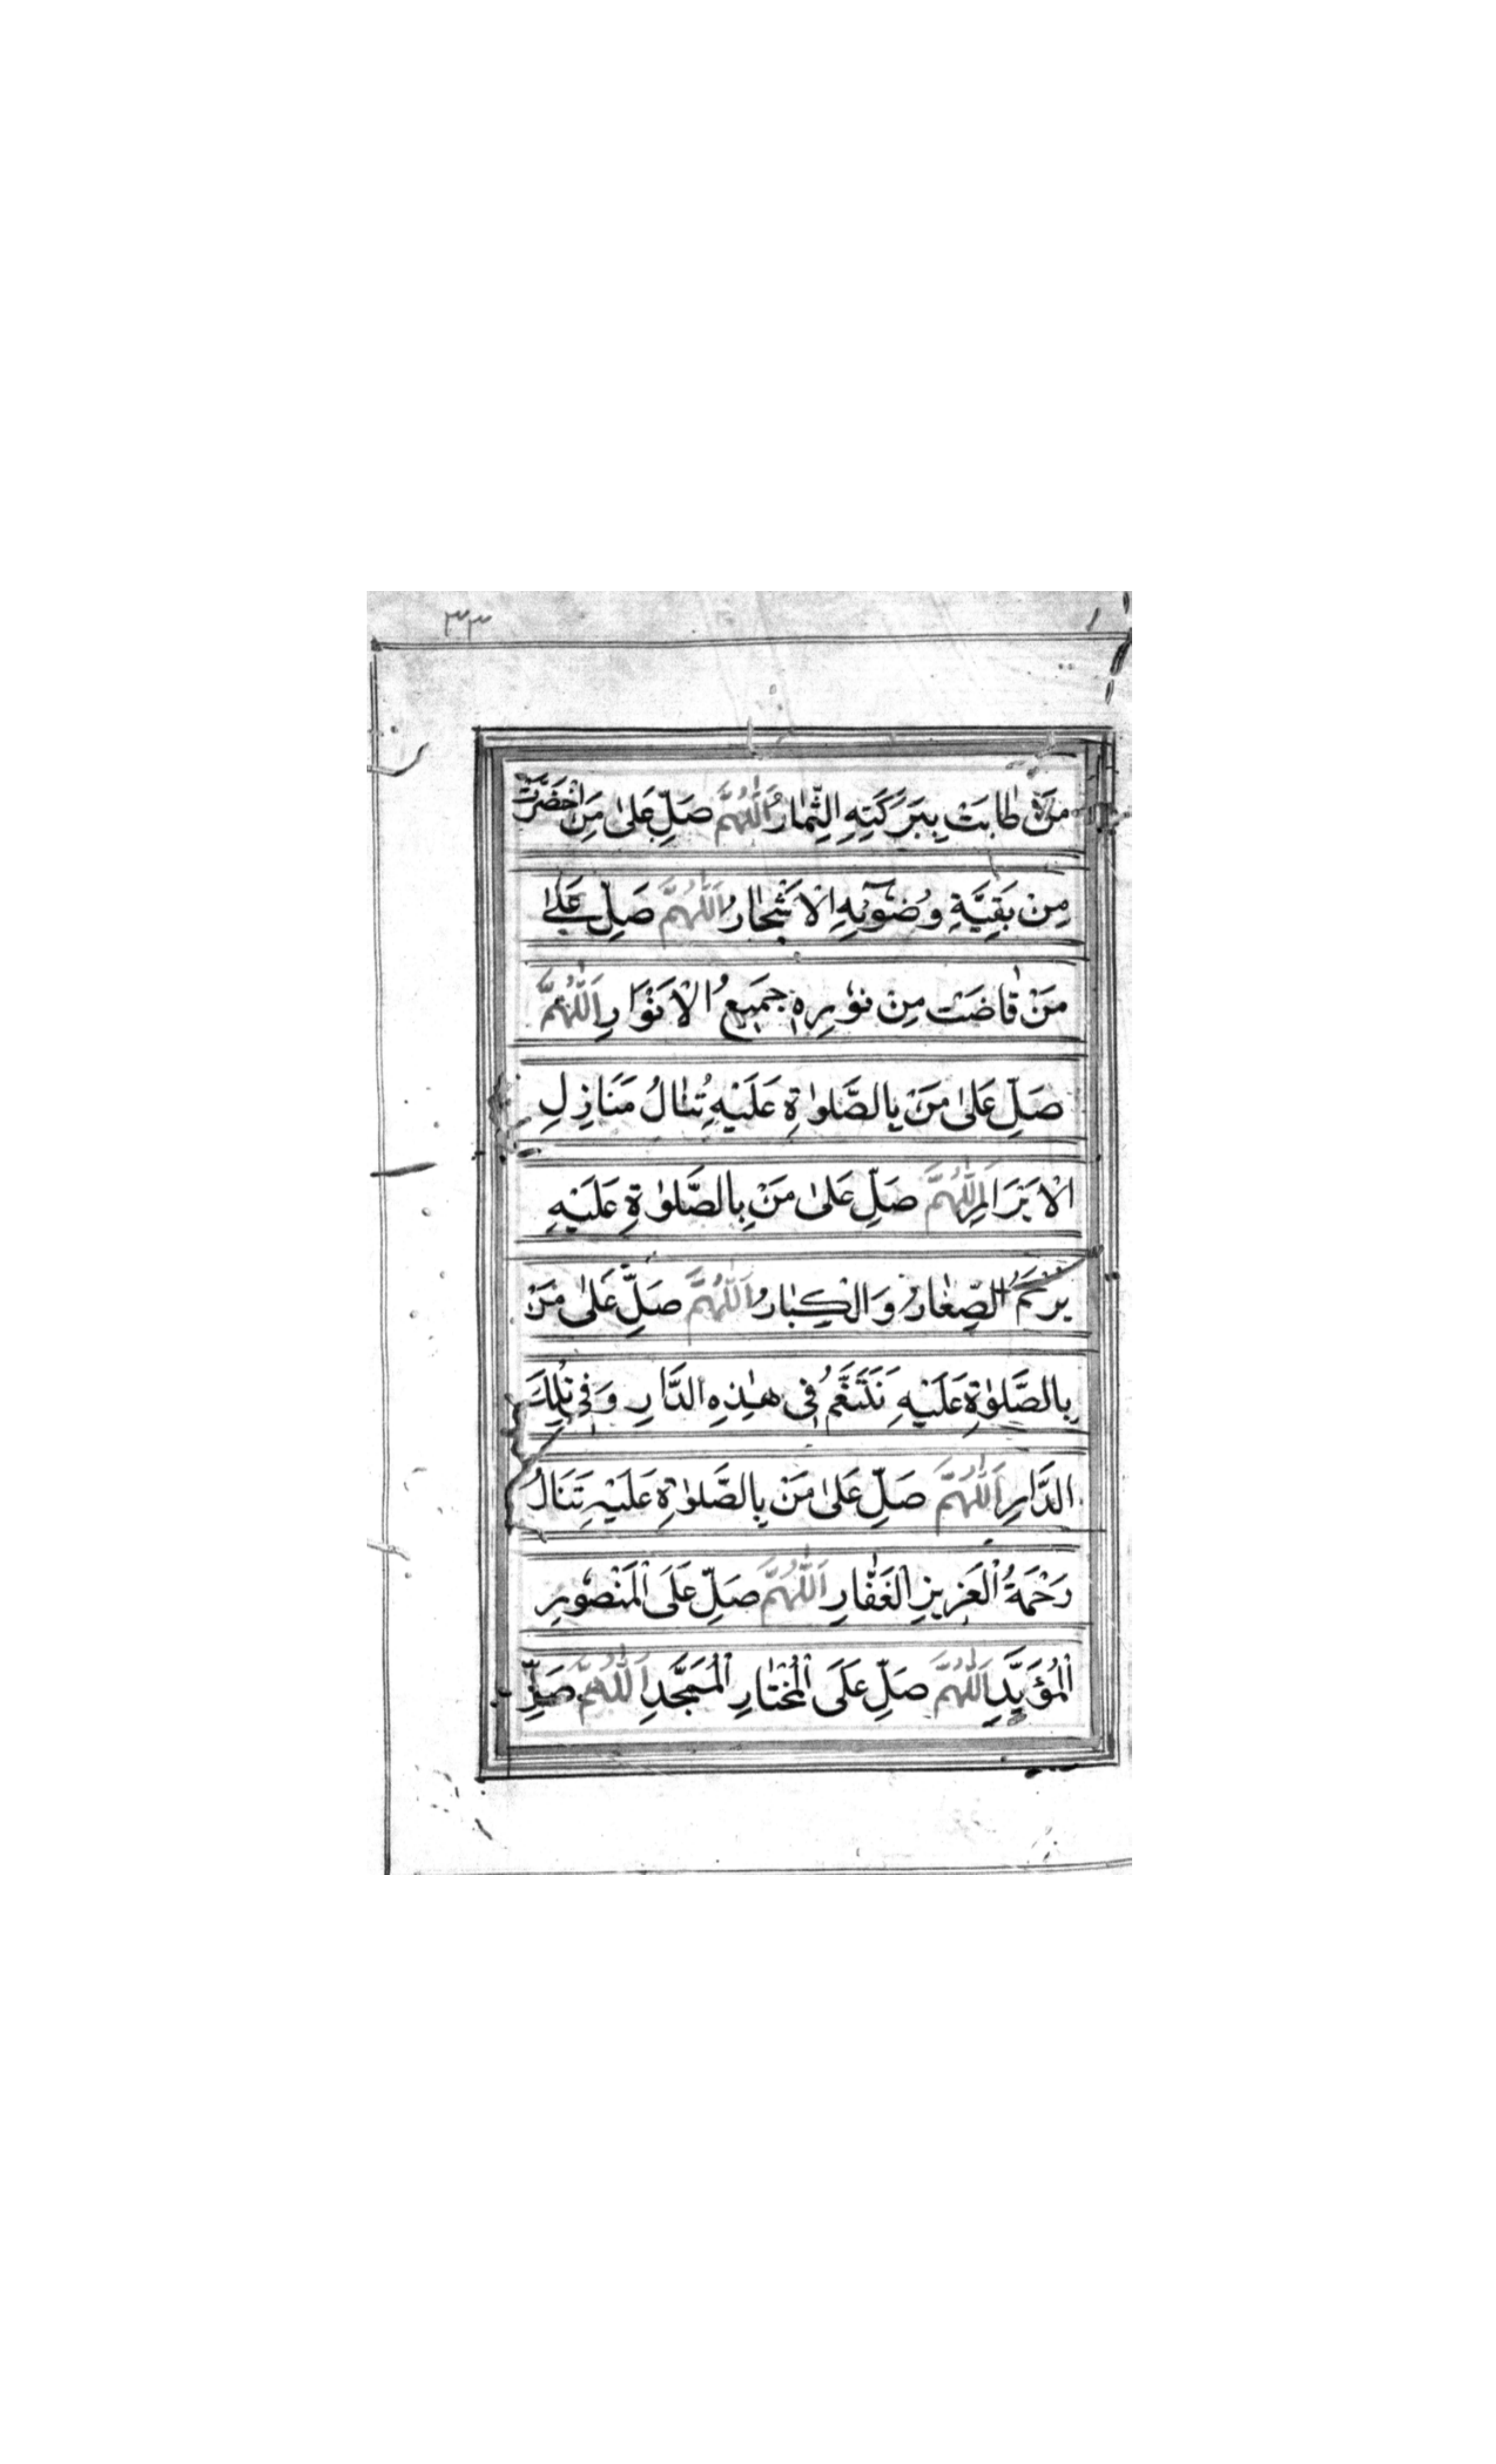 ٣٣
مَنْ طَابَتْ بِبَرَكَتِهِ الثِّمَارُ اَللّٰهُمَّ صَلِّ عَلٰى مَنِ اخْضَرَّتْ
مِنْ بَقِيَّةِ وُضُوْئِهِ الْاَشْجَارُ اَللّٰهُمَّ صَلِّ عَلٰى
مَنْ فَاضَتْ مِنْ نُوْرِهٖ جَمِيْعُ الْاَنْوَارِ اَللّٰهُمَّ
صَلِّ عَلٰى مَنْ بِالصَّلٰوةِ عَلَيْهِ تُنَالُ مَنَازِلُ
الْاَبْرَارِ اَللّٰهُمَّ صَلِّ عَلٰى مَنْ بِالصَّلٰوةِ عَلَيْهِ
يُرْحَمُ الصِّغَارُ وَالْكِبَارُ اَللّٰهُمَّ صَلِّ عَلٰى مَنْ
بِالصَّلٰوةِ عَلَيْهِ نَتَنَعَّمُ فِى هٰذِهِ الدَّارِ وَفِى تِلْكَ
الدَّارِ اَللّٰهُمَّ صَلِّ عَلٰى مَنْ بِالصَّلٰوةِ عَلَيْهِ تُنَالُ
رَحْمَةُ الْعَزِيْزِ الْغَفَّارِ اَللّٰهُمَّ صَلِّ عَلَى الْمَنْصُوْرِ
الْمُؤَيَّدِ اَللّٰهُمَّ صَلِّ عَلَى الْمُخْتَارِ الْمُمَجَّدِ اَللّٰهُمَّ صَلِّ